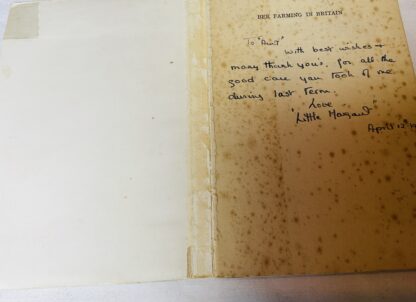 BEE FARMING IN BRITAIN
To "Aunt"
With best wishes +
many thank you's, for all the
good care you took of me
during last term.
Love
"Little Margaret"
April